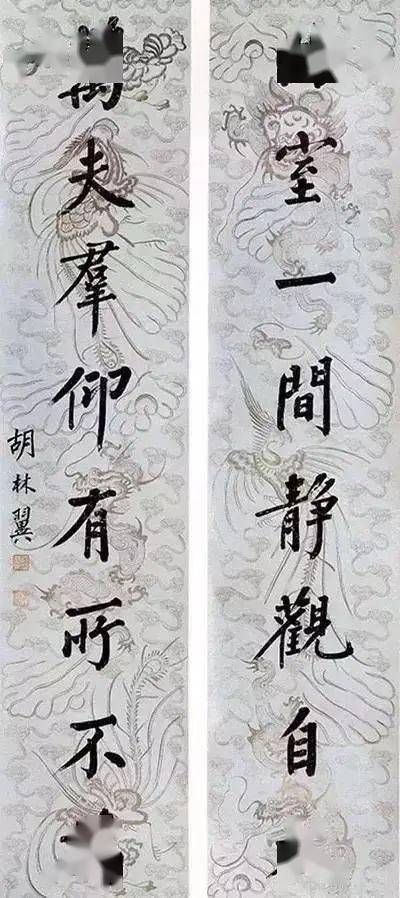 室一間静觀自
萬夫羣仰有所不
胡林翼